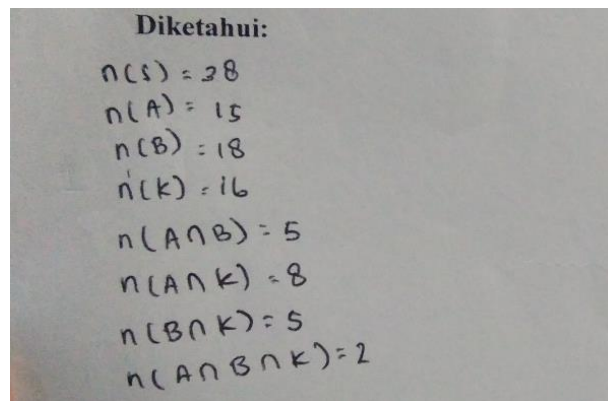 Diketahui:
n(S) = 38
n(A) = 15
n(B) = 18
n(K) = 16
n(A∩B) = 5
n(A∩K) = 8
n(B∩K) = 5
n(A∩B∩K) = 2